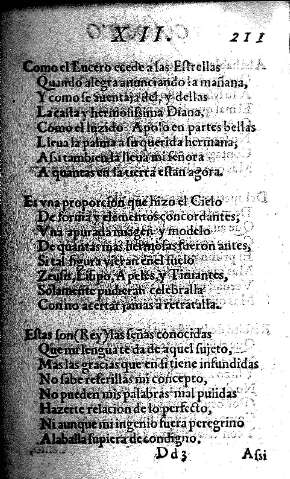 XII. 211
Como el Luzero ecede a las Estrellas
Quando alegra anunciando la mañana,
Y como se auentaja del, y dellas
La casta y hermosissima Diana,
Como el luzido Apolo en partes bellas
Lleua la palma a su querida hermana,
Assi tambien la lleua mi señora
A quantas en la tierra estan agora.
Es vna proporcion que hizo el Cielo
De forma y elementos concordantes,
Vna apurada imagen y modelo
De quantas mas hermosas fueron antes,
Si tal figura vieran en el suelo
Zeusis, Lisipo, Apeles, y Timantes,
Solamente pudieran celebralla
Con no acertar jamas a retratalla.
Estas son (Rey) las señas conocidas
Que mi lengua te da de aquel sujeto,
Mas las gracias que en si tiene infundidas
No sabe referillas mi conceto,
No pueden mis palabras mal pulidas
Hazerte relacion de lo perfecto,
Ni aunque mi ingenio fuera peregrino
Alaballa supiera de condigno.
Dd3 Assi